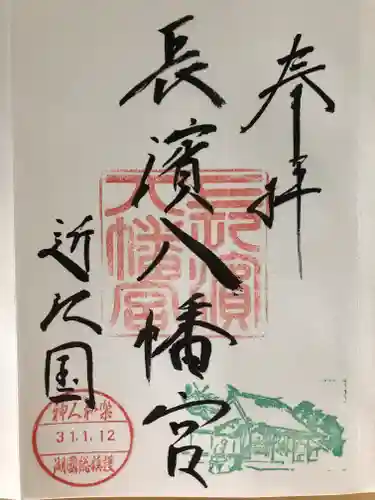 奉拝
長濱八幡宮
近江国
楽和人神
31.1.12
湖國総鎮護